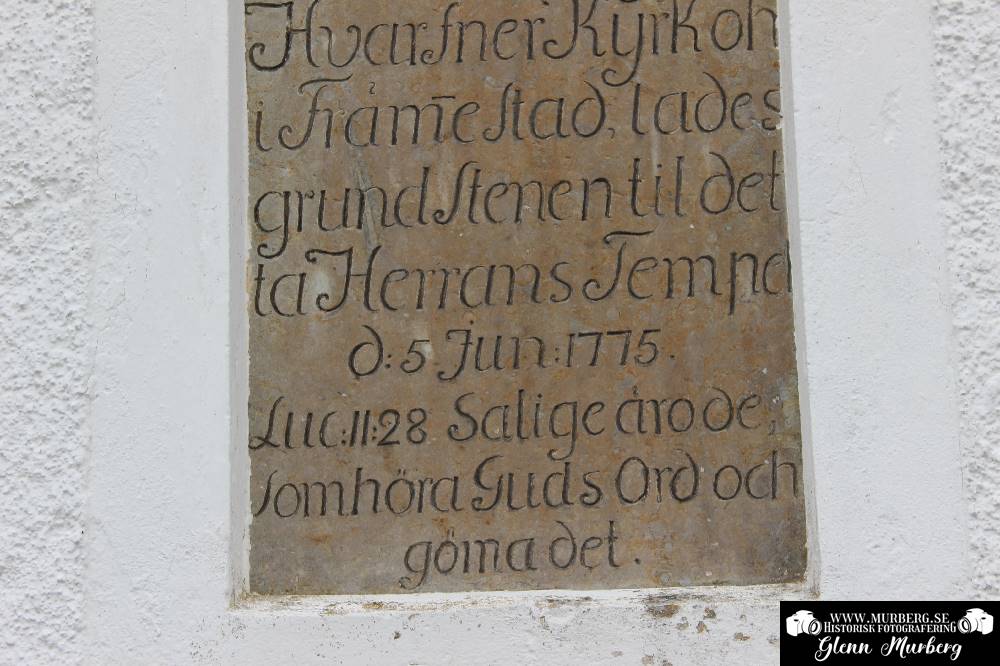 Hvarfner Kyrkoh
i Främestad, lades
grundstenen til det
ta Herrans Tempel
d: 5 Jun: 1775.
Luc: 11: 28 Salige äro de,
som höra Guds Ord och
göma det.
WWW.MURBERG.SE
HISTORISK FOTOGRAFERING
Glenn Murberg